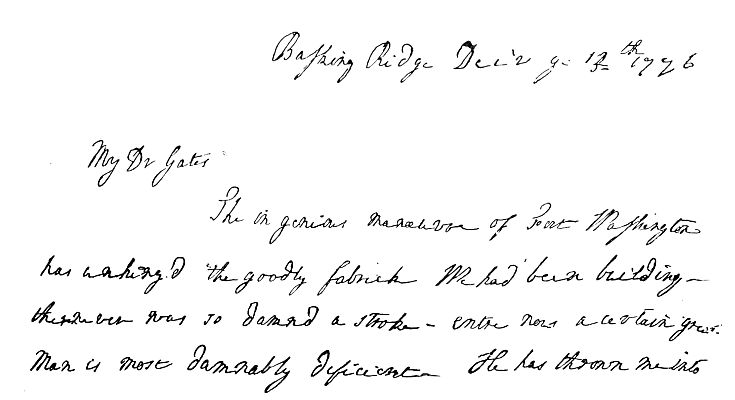 Basking Ridge Dec'r ye 13th 1776
My Dr Gates
The ingenious manœuvre of Fort Washington
has unhing'd the goodly fabrick We had been building—
there never was so damn'd a stroke — entre nous a certain great
Man is most damnably deficient— He has thrown me into